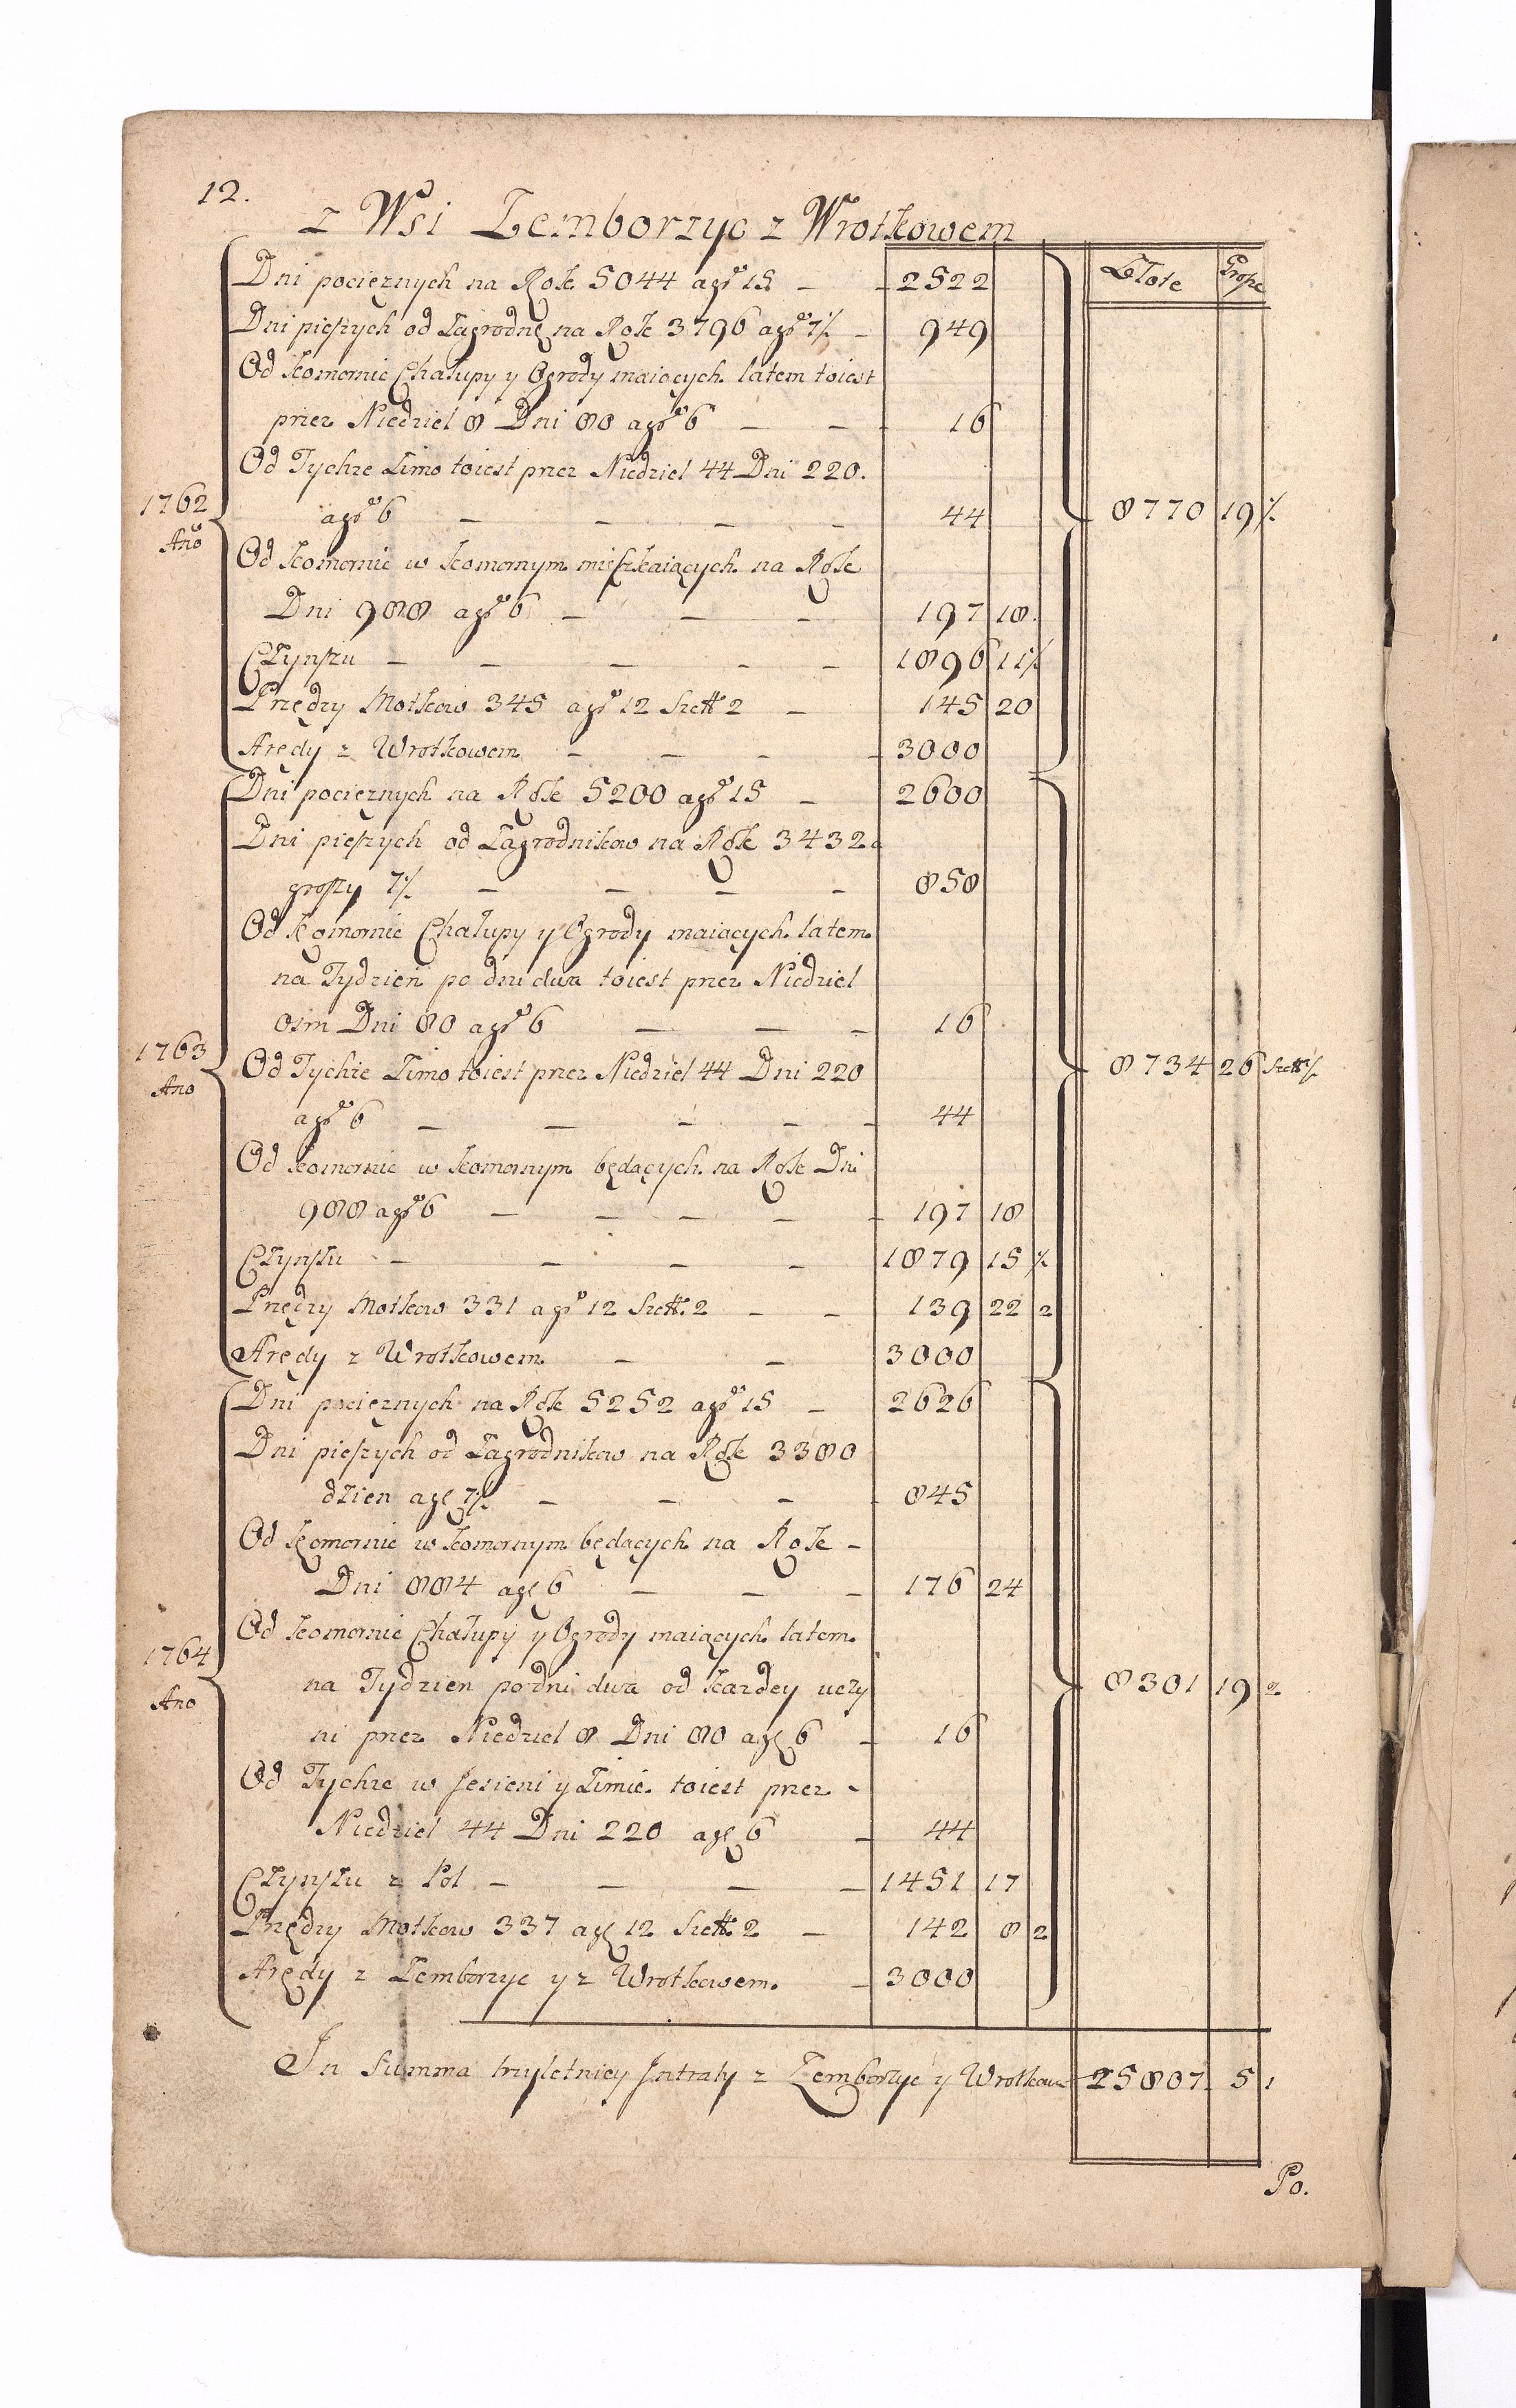 12.
z Wsi Zemborzyc z Wrotkowem
Złote Grosze
Dni pociężnych na Rok 5044 a gr 15 – 2522
Dni pieszych od Zagrodnę na Rok 3796 a gr 7½ – 949
Od komornic Chałupy y Ogrody maiących latem toiest
przez Niedziel 8 Dni 80 a gr 6 – – 16
Od Tychże Zimo toiest przez Niedziel 44 Dni 220.
a gr 6 – – – – 44
1762 Ano
8770 19 ½
Od komornic w komornym mieszkaiących na Rok
Dni 988 a gr 6 – – – 197 18.
Czynszu – – – – – 1896 11½
Przędzy Motkow 345 a gr 12 Szel 2 – 145 20
Arędy z Wrotkowem – – – 3000
Dni pociężnych na Rok 5200 a gr 15 – 2600
Dni pieszych od Zagrodnikow na Rok 3432 a
groszy 7½ – – – – 858
Od komornic Chałupy y Ogrody maiących latem
na Tydzień po dni dwa toiest przez Niedziel
osm Dni 80 a gr 6 – – – 16
1763 Ano
Od Tychże Zimo toiest przez Niedziel 44 Dni 220
8734 26 Szel ½
a gr 6 – – – – – 44
Od komornic w komornym będących na Rok Dni
988 a gr 6 – – – – – 197 18
Czynszu – – – – 1879 15 ½
Przędzy Motkow 331 a gr 12 Szel. 2 – – 139 22 2
Arędy z Wrotkowem – – 3000
Dni pociężnych na Rok 5252 a gr 15 – 2626
Dni pieszych od Zagrodnikow na Rok 3380
dzien a gr 7½ – – – 845
Od komornic w komornym będących na Rok –
Dni 884 a gr 6 – – – 176 24
Od komornic Chałupy y Ogrody maiących latem
1764 Ano
na Tydzien po dni dwa od każdey uczy
8301 19 2
ni przez Niedziel 8 Dni 80 a gr 6 – 16
Od Tychże w Jesieni y Zimie toiest przez –
Niedziel 44 Dni 220 a gr 6 – 44
Czynszu z Pol – – – – 1451 17
Przędzy Motkow 337 a gr 12 Szel. 2 – 142 8 2
Arędy z Zemborzyc y z Wrotkowem. – 3000
In Summa trzyletniey Jntraty z Zemborzyc y Wrotkowa 25807. 5 1
Po.